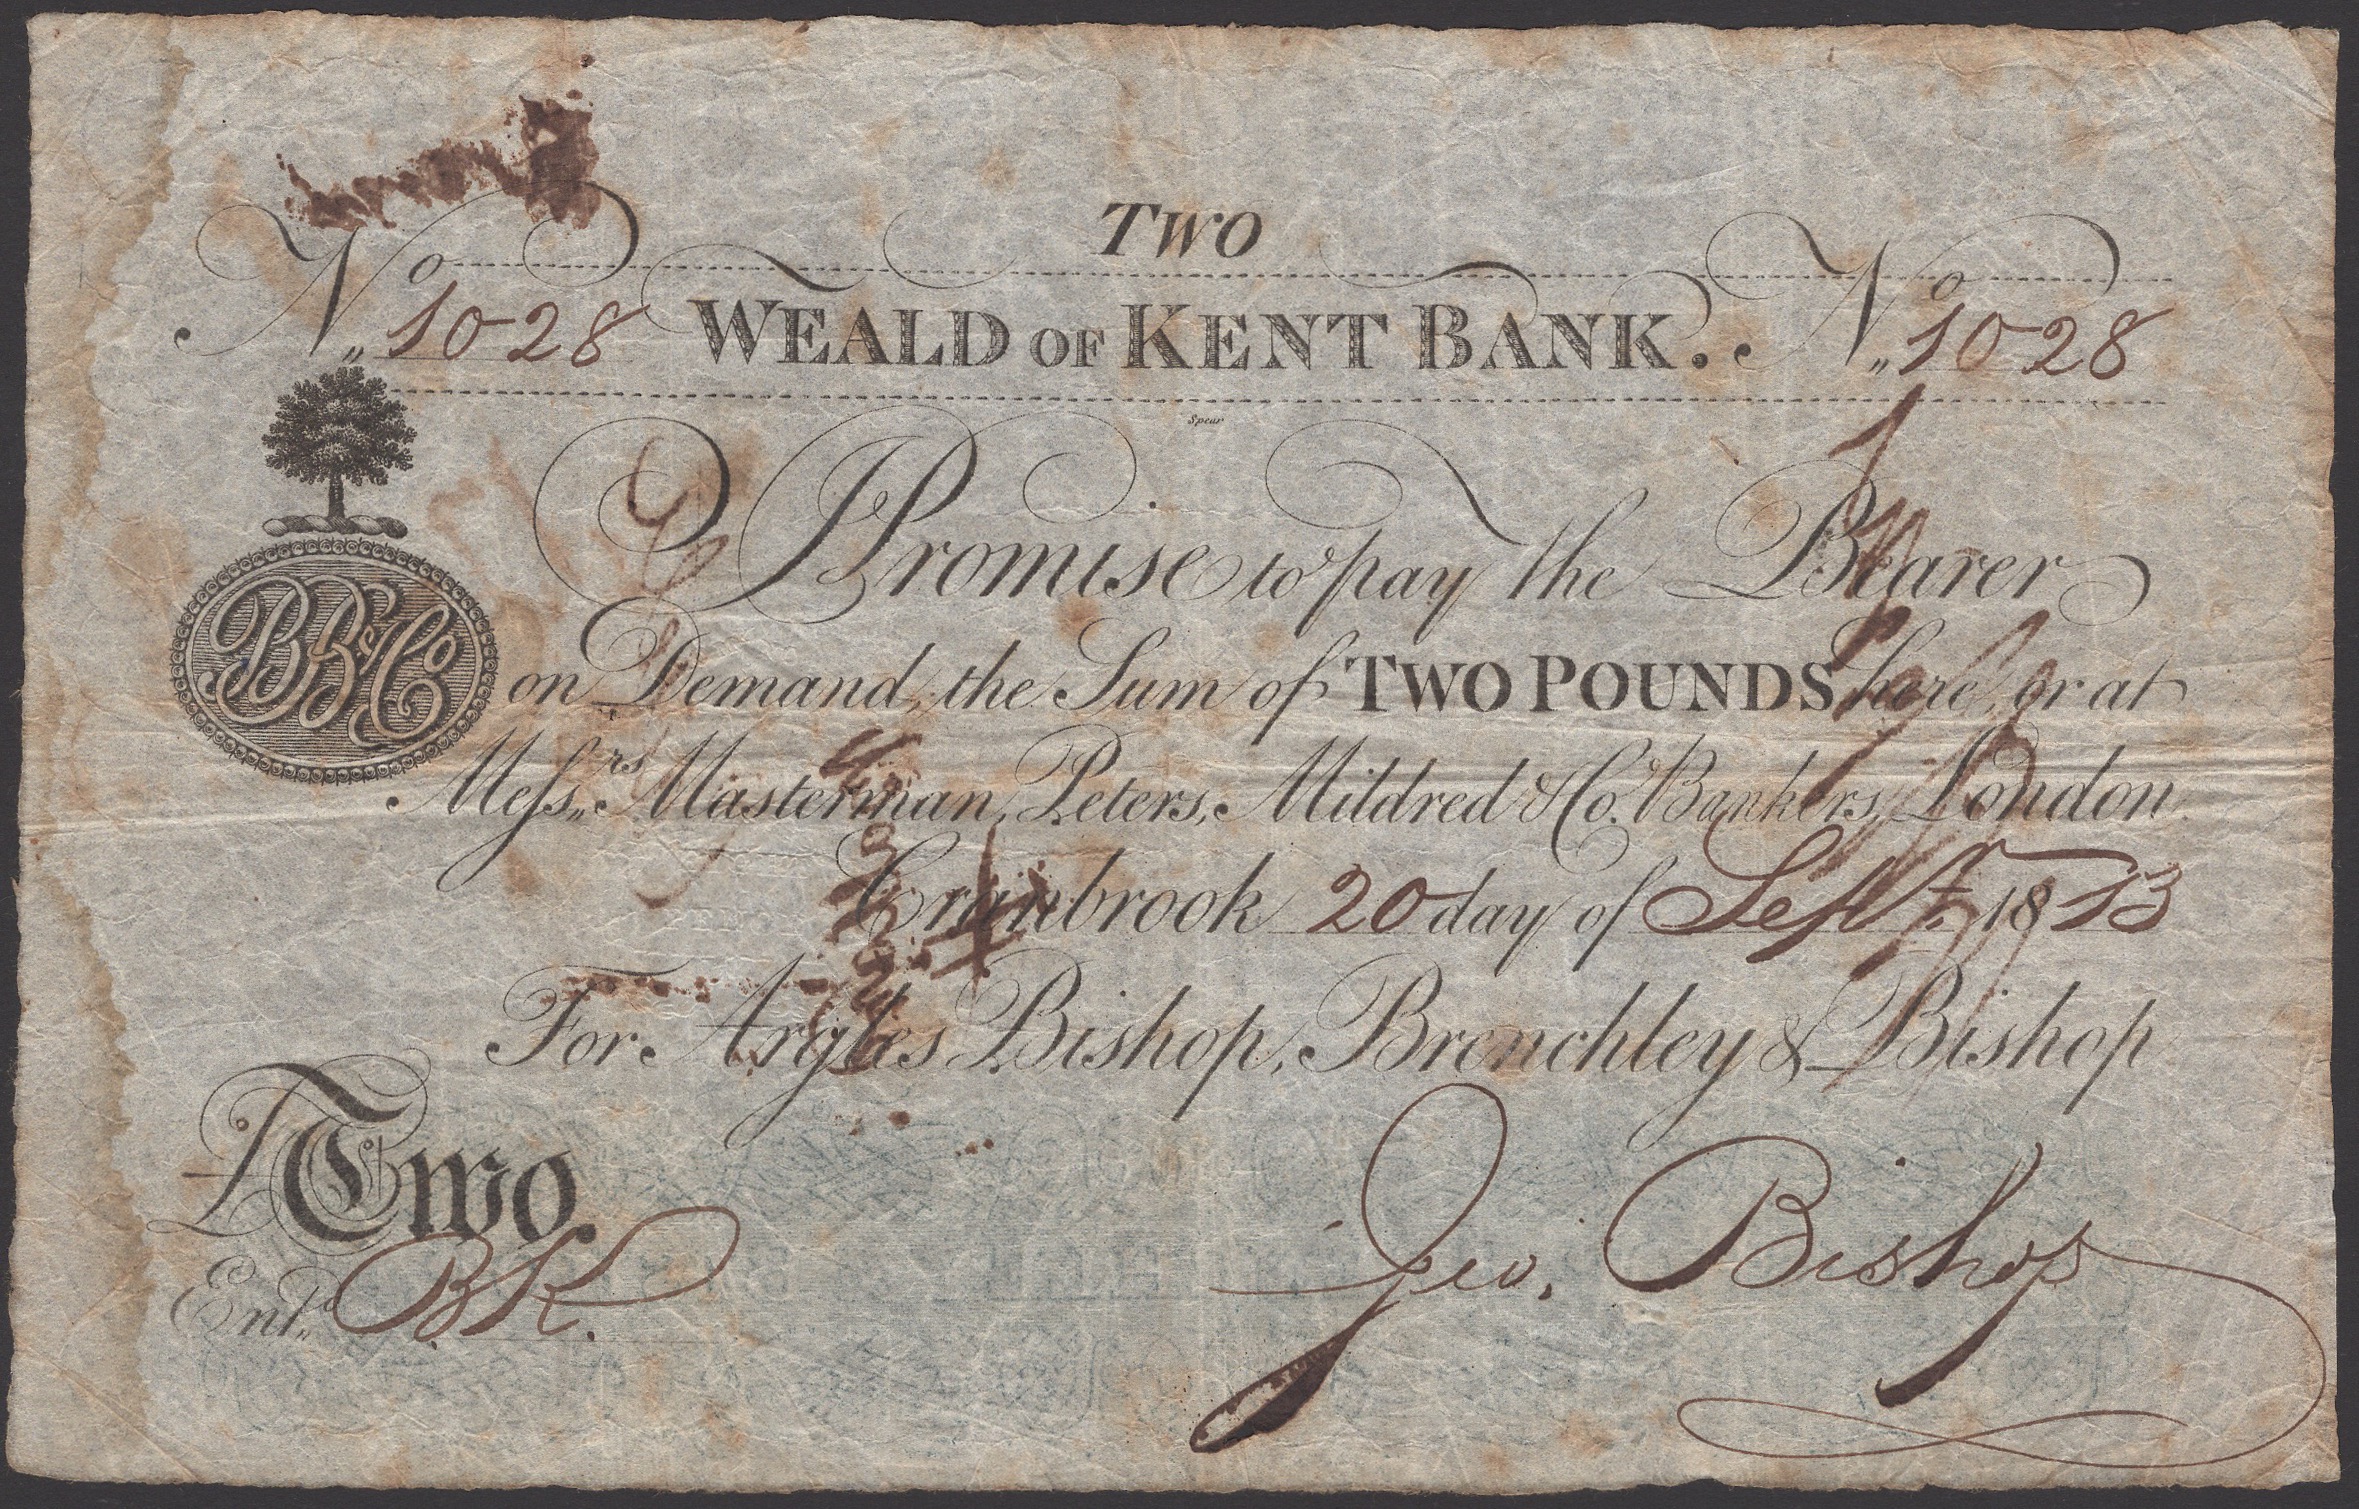 TWO
No 1028 WEALD OF KENT BANK. No 1028
Spear
I Promise to pay the Bearer
BB & Co
on Demand, the Sum of TWO POUNDS here, or at
Messrs Masterman, Peters, Mildred & Co. Bankers, London.
Cranbrook 20 day of Septr. 1813
For Argles Bishop, Brenchley & Bishop
£Two.
Geo. Bishop
Entd. BK.